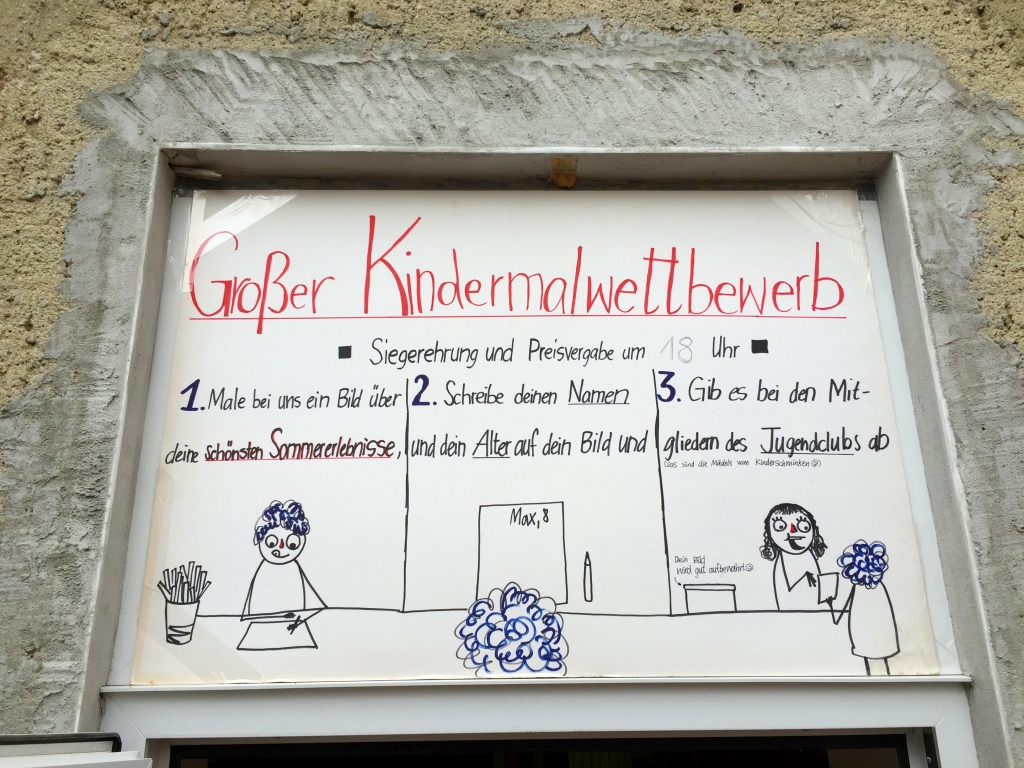 Großer Kindermalwettbewerb
Siegerehrung und Preisvergabe um 18 Uhr
1. Male bei uns ein Bild über
deine schönsten Sommererlebnisse,
2. Schreibe deinen Namen
und dein Alter auf dein Bild und
3. Gib es bei den Mit-
gliedern des Jugendclubs ab
(das sind die Mädels vom Kinderschminken ☺)
Max, 8
Dein Bild
wird gut aufbewahrt ☺